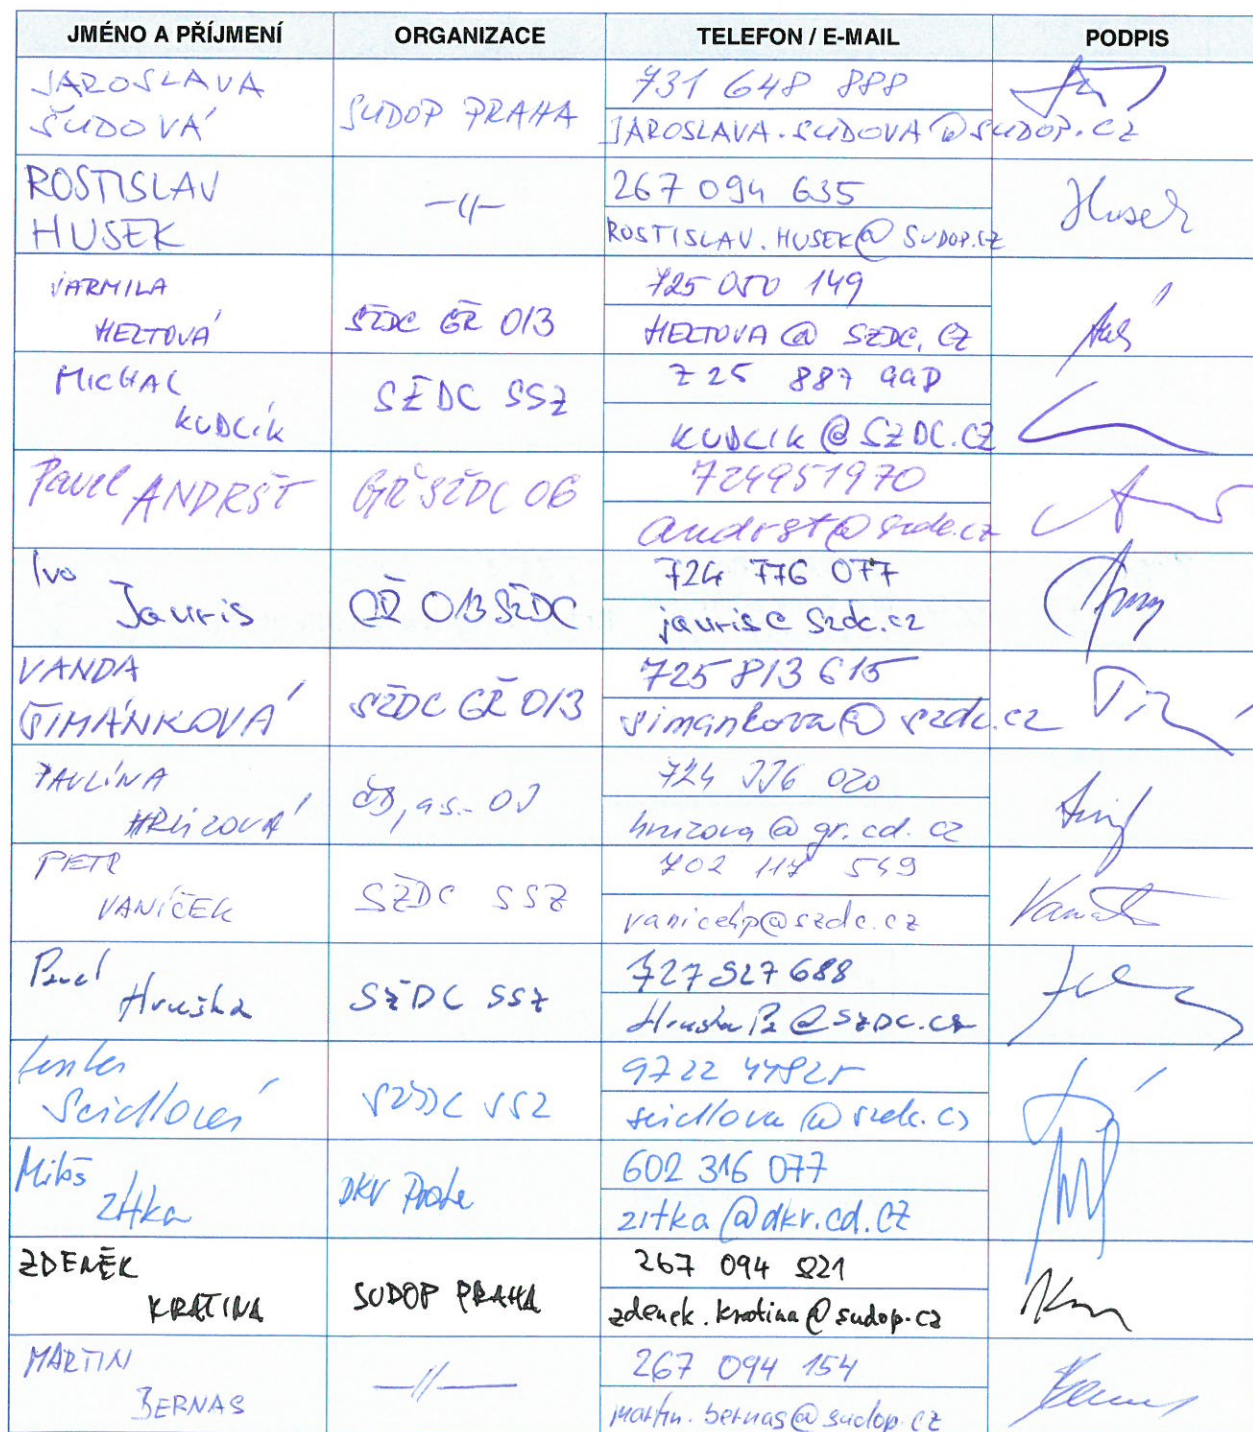 JMÉNO A PŘÍJMENÍ ORGANIZACE TELEFON / E-MAIL PODPIS
JAROSLAVA ŠUDOVÁ SUDOP PRAHA 731 648 888
JAROSLAVA.SUDOVA@SUDOP.CZ
ROSTISLAV HUSEK —〃— 267 094 635 Husek
ROSTISLAV.HUSEK@SUDOP.CZ
JARMILA HERTOVÁ SŽDC GŘ 013 725 050 149
HERTOVA@SZDC.CZ
MICHAL KUDLÍK SŽDC SSZ 725 887 998
KUDLIK@SZDC.CZ
Pavel ANDRŠT GŘ SŽDC O6 724951970
andrst@szdc.cz
Ivo Jauris GŘ O13 SŽDC 724 776 077
jauris@szdc.cz
VANDA ŠIMÁNKOVÁ SŽDC GŘ 013 725 813 615
simankova@szdc.cz
PAVLÍNA HRŮZOVÁ ČD, a.s.
hruzova@gr.cd.cz
PETR VANÍČEK SŽDC SSZ 702 117 549
vanicekp@szdc.cz
Pavel Hruška SŽDC SSZ 727 927 688
HruskaPa@SZDC.cz
Lenka Seidlová SŽDC SSZ
seidlova@szdc.cz
Miloš Zítka DKV Praha 602 316 077
zitka@dkv.cd.cz
ZDENĚK KRATINA SUDOP PRAHA 267 094 821
zdenek.kratina@sudop.cz
MARTIN BERNAS —〃— 267 094 154
martin.bernas@sudop.cz